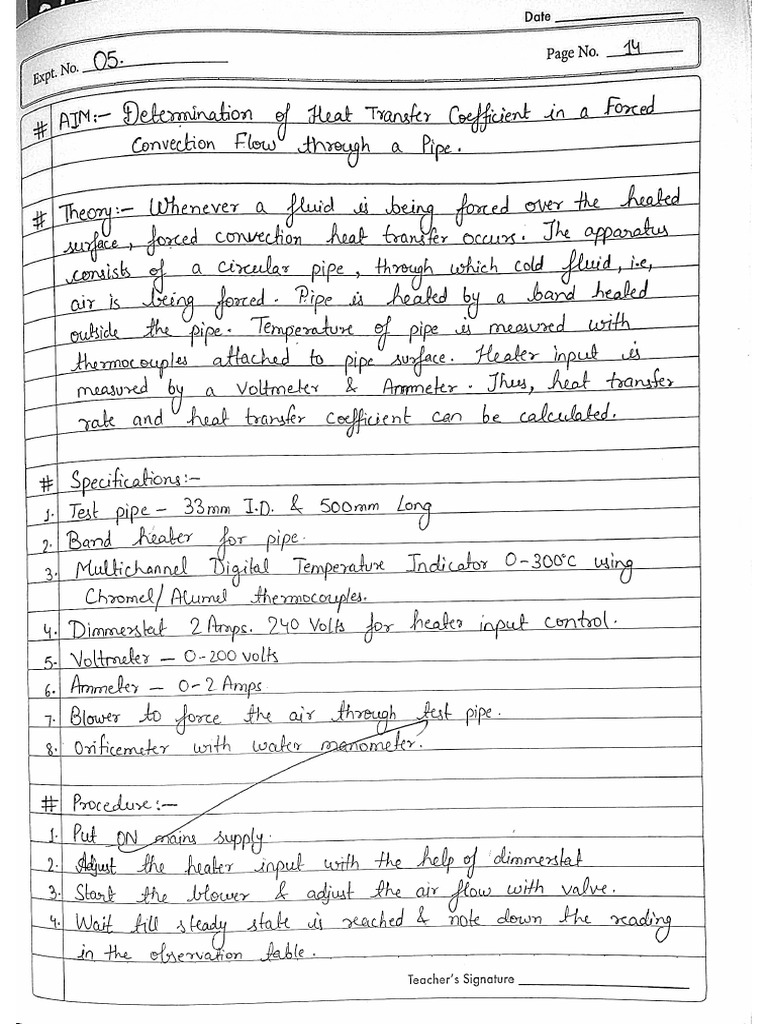 Date
Expt. No. 05.
Page No. 14
# AIM:- Determination of Heat Transfer Coefficient in a Forced
Convection Flow through a Pipe.
# Theory:- Whenever a fluid is being forced over the heated
surface, forced convection heat transfer occurs. The apparatus
consists of a circular pipe, through which cold fluid, i.e,
air is being forced. Pipe is heated by a band heated
outside the pipe. Temperature of pipe is measured with
thermocouples attached to pipe surface. Heater input is
measured by a Voltmeter & Ammeter. Thus, heat transfer
rate and heat transfer coefficient can be calculated.
# Specifications:-
1. Test pipe - 33mm I.D. & 500mm Long
2. Band heater for pipe.
3. Multichannel Digital Temperature Indicator 0-300°C using
Chromel/Alumel thermocouples.
4. Dimmerstat 2 Amps. 240 Volts for heater input control.
5. Voltmeter - 0-200 volts
6. Ammeter - 0-2 Amps
7. Blower to force the air through test pipe.
8. Orificemeter with water manometer.
# Procedure:-
1. Put ON mains supply.
2. Adjust the heater input with the help of dimmerstat
3. Start the blower & adjust the air flow with valve.
4. Wait till steady state is reached & note down the reading
in the observation table.
Teacher's Signature